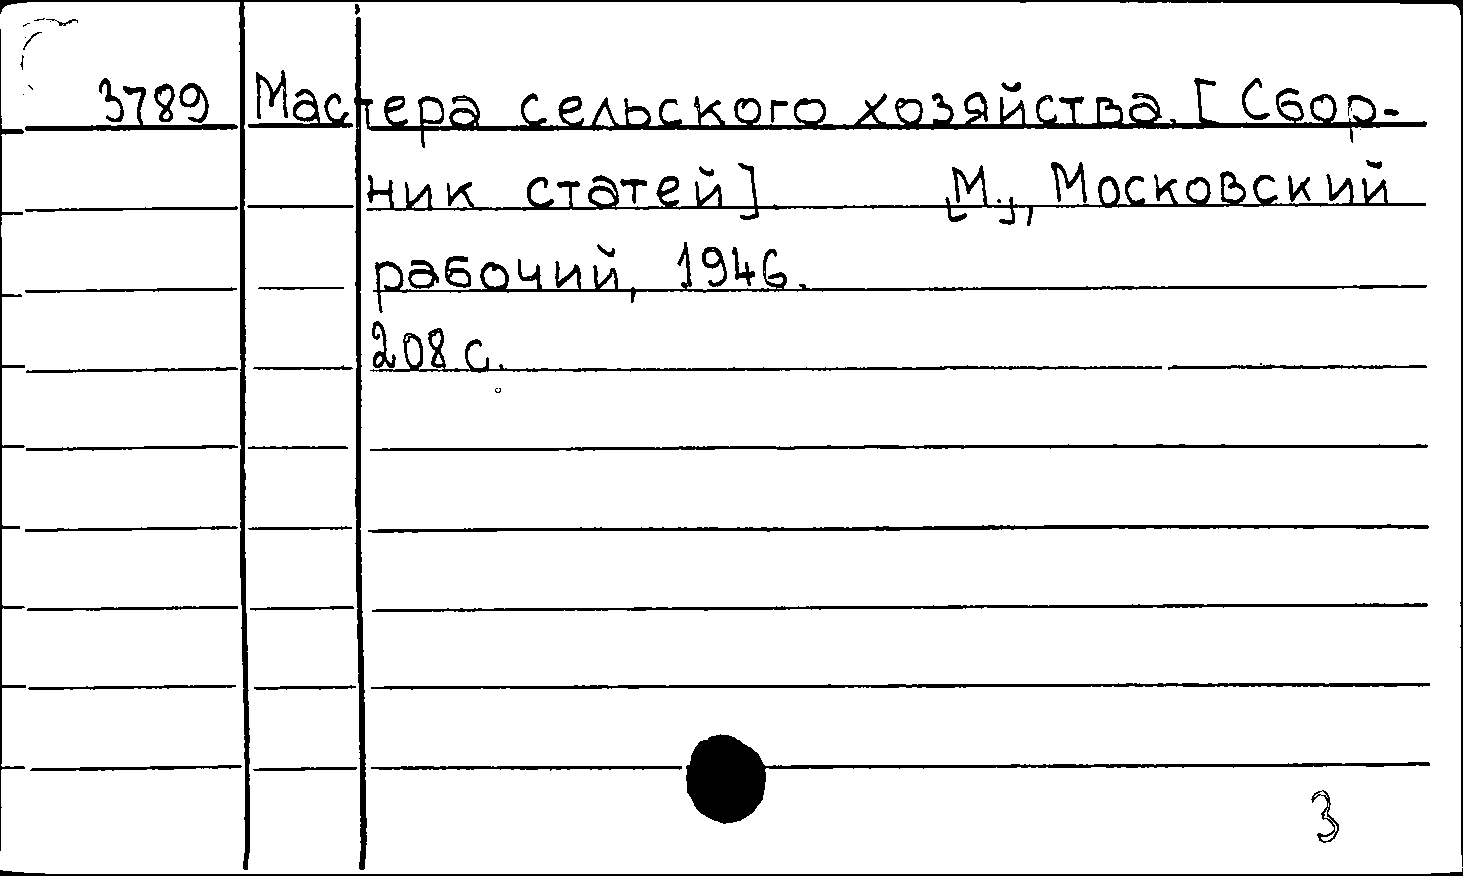 3789 Мастера сельского хозяйства. [Сбор-
ник статей]. [М.], Московский
рабочий, 1946.
208 с.
3